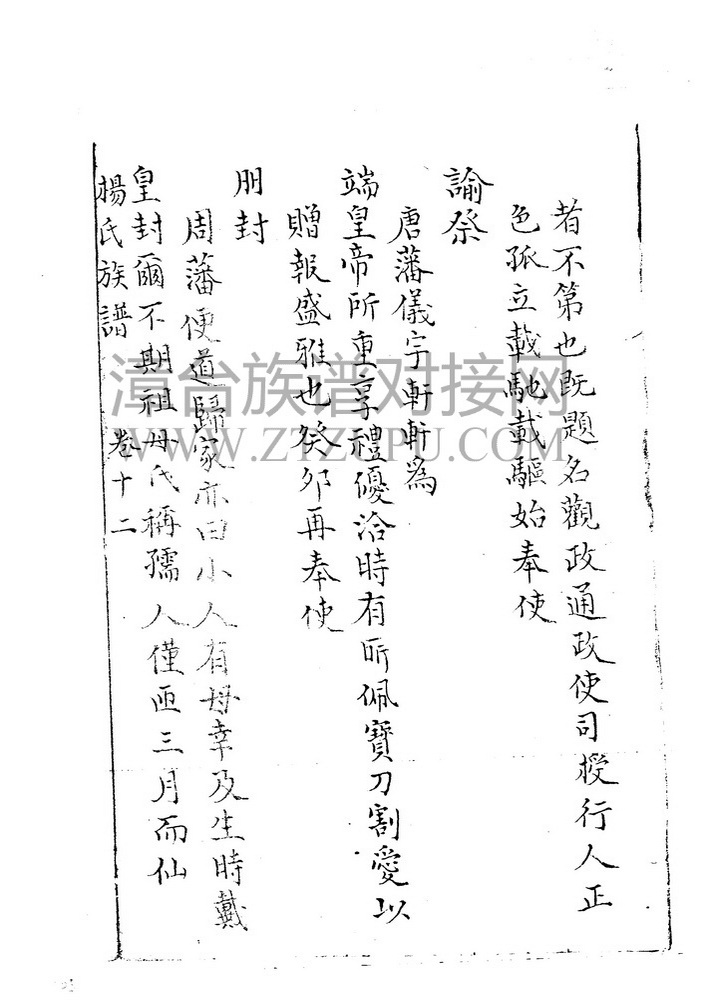 者不第也既題名觀政通政使司授行人正
色孤立載馳載驅始奉使
諭祭
唐藩儀宇軒軒為
端皇帝所重享禮優洽時有所佩寶刀割愛以
贈報盛雅也癸卯再奉使
册封
周藩便道歸家亦曰小人有母幸及生時戴
皇封爾不期祖母氏稱孺人僅匝三月而仙
楊氏族譜 卷十二
漳台族谱对接网
WWW.ZTZUPU.COM